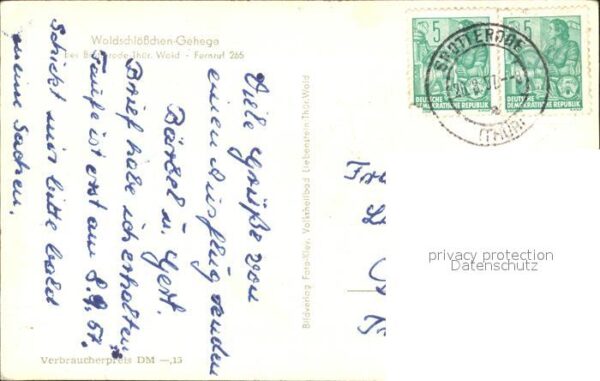 Waldschlößchen-Gehege
bei Brotterode-Thür. Wald - Fernruf 265
Viele Grüße von
einen Ausflug senden
Bärbel u. Gert.
Brief habe ich erhalten
Taufe ist erst am 8.9.57.
Schickt mir bitte bald
meine Sachen.
Verbraucherpreis DM —,13
Bildverlag Foto-Kiev, Volksheilbad Liebenstein-Thür.Wald
5
DEUTSCHE
DEMOKRATISCHE REPUBLIK
5
DEUTSCHE
DEMOKRATISCHE REPUBLIK
BROTTERODE
(THÜR)
privacy protection
Datenschutz